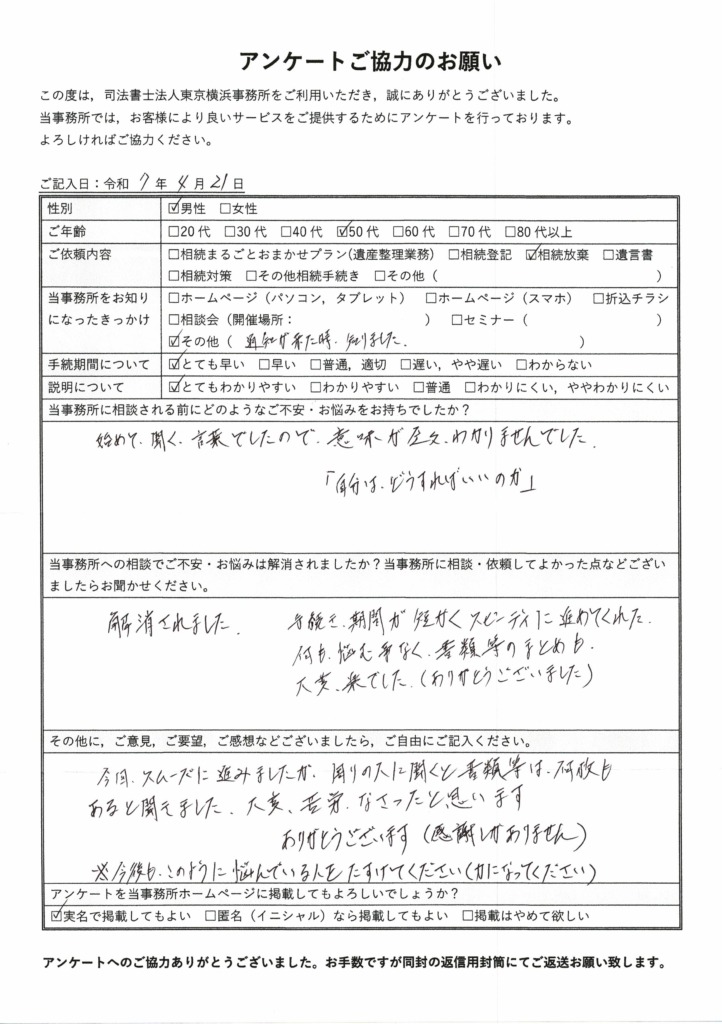 アンケートご協力のお願い
この度は，司法書士法人東京横浜事務所をご利用いただき，誠にありがとうございました。
当事務所では，お客様により良いサービスをご提供するためにアンケートを行っております。
よろしければご協力ください。
ご記入日：令和 7 年 4 月 21 日
性別 ☑男性 □女性
ご年齢 □20代 □30代 □40代 ☑50代 □60代 □70代 □80代以上
ご依頼内容 □相続まるごとおまかせプラン(遺産整理業務) □相続登記 ☑相続放棄 □遺言書
□相続対策 □その他相続手続き □その他（ ）
当事務所をお知り □ホームページ（パソコン，タブレット） □ホームページ（スマホ） □折込チラシ
になったきっかけ □相談会（開催場所： ） □セミナー（ ）
☑その他（ 通知が来た時、知りました. ）
手続期間について ☑とても早い □早い □普通，適切 □遅い，やや遅い □わからない
説明について ☑とてもわかりやすい □わかりやすい □普通 □わかりにくい，ややわかりにくい
当事務所に相談される前にどのようなご不安・お悩みをお持ちでしたか？
始めて、聞く、言葉でしたので、意味が全々、わかりませんでした.
「自分は、どうすればいいのか」
当事務所への相談でご不安・お悩みは解消されましたか？当事務所に相談・依頼してよかった点などござい
ましたらお聞かせください。
解消されました. 手続き、期間が短かくスピーディに進めてくれた.
何も、悩む事なく、書類等のまとめも、
大変、楽でした.（ありがとうございました）
その他に，ご意見，ご要望，ご感想などございましたら，ご自由にご記入ください。
今回、スムーズに進みましたが、周りの人に聞くと書類等は、何枚も
あると聞えました、大変、苦労、なさったと思います
ありがとうございます（感謝しかありません）
※今後も、このように悩んでいる人をたすけてください（力になってください）
アンケートを当事務所ホームページに掲載してもよろしいでしょうか？
☑実名で掲載してもよい □匿名（イニシャル）なら掲載してもよい □掲載はやめて欲しい
アンケートへのご協力ありがとうございました。お手数ですが同封の返信用封筒にてご返送お願い致します。